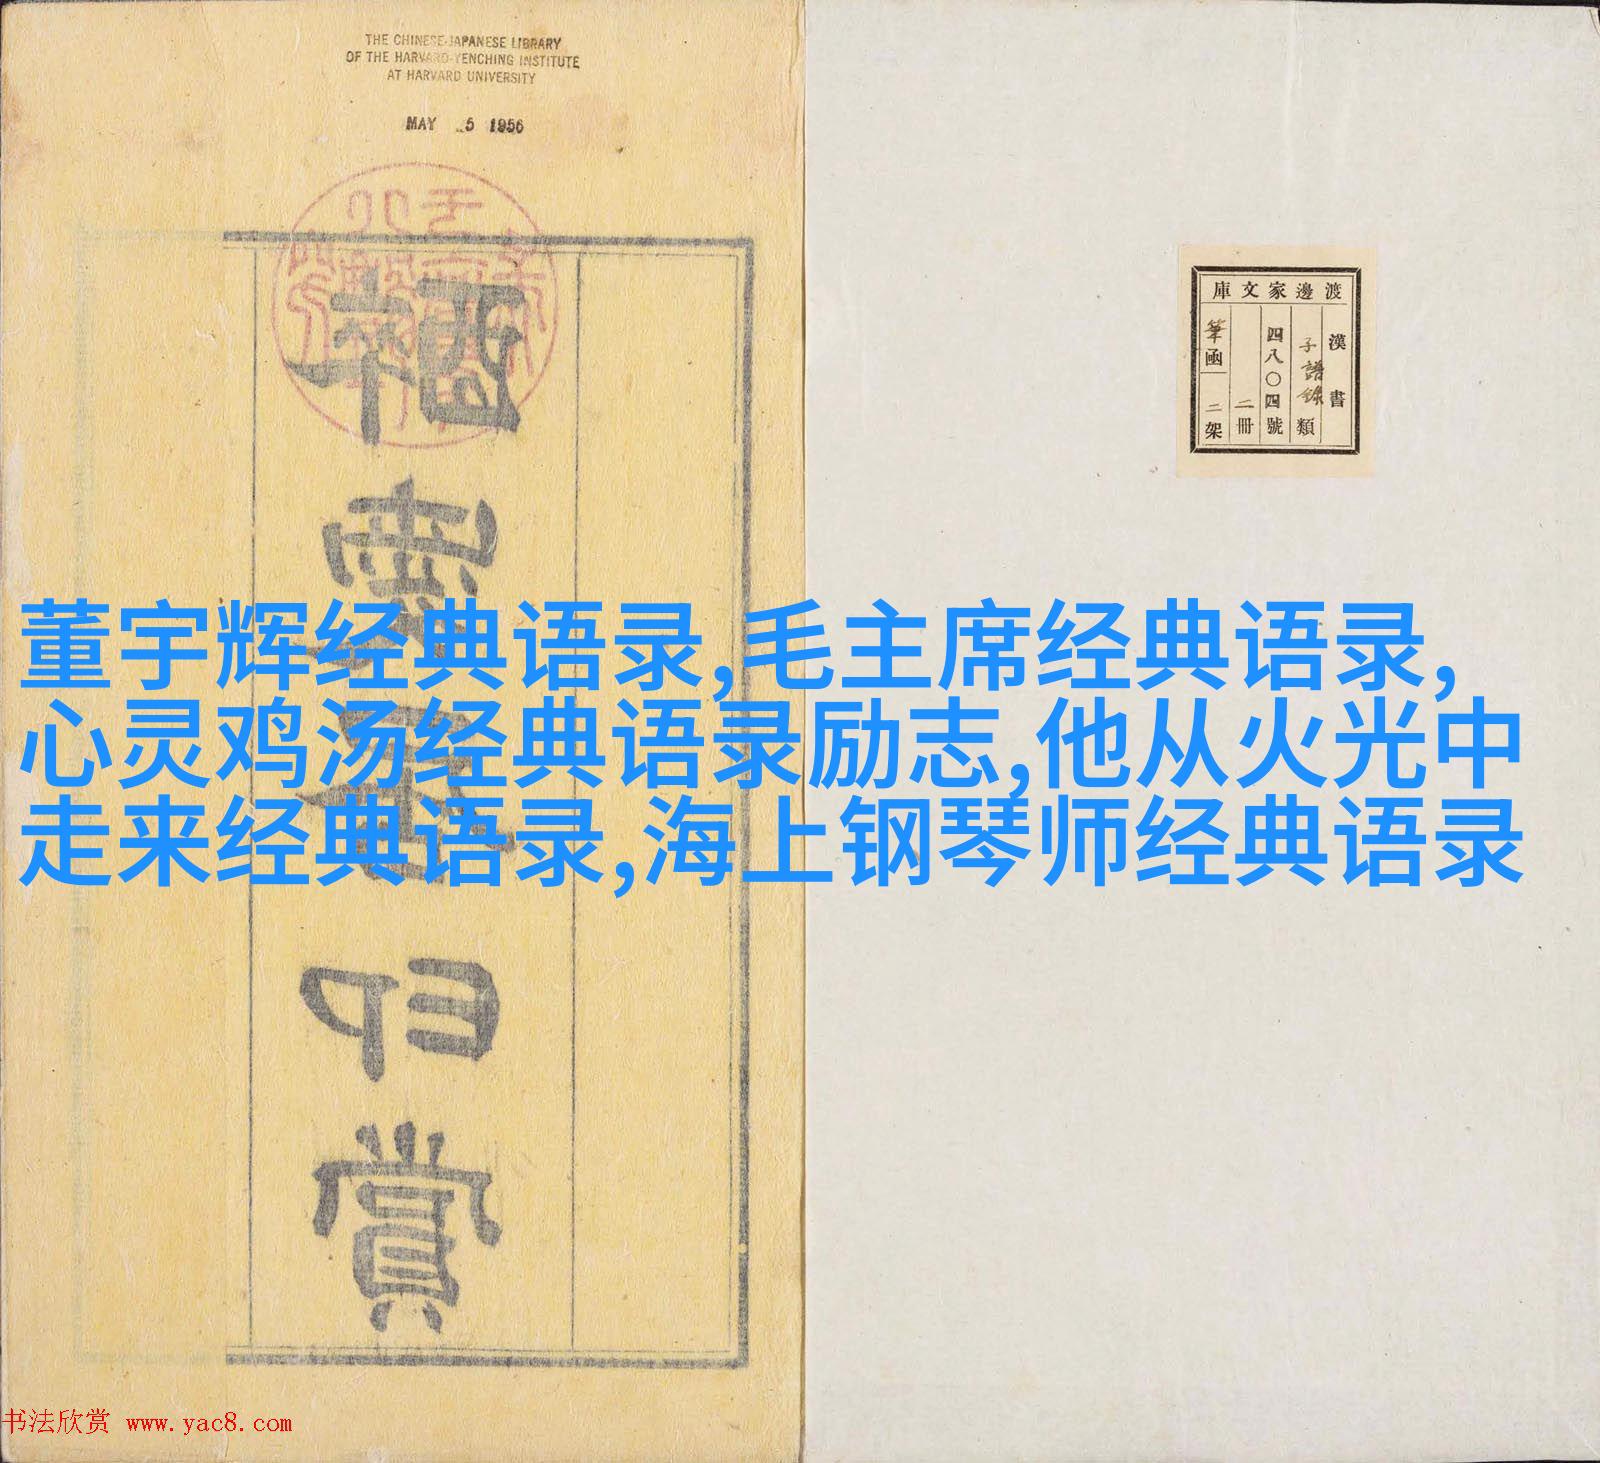 THE CHINESE-JAPANESE LIBRARY
OF THE HARVARD-YENCHING INSTITUTE
AT HARVARD UNIVERSITY
MAY 5 1956
渡邊家文庫
漢書
子語錄類
四八〇四號
二冊
筆函二架
董宇辉经典语录,毛主席经典语录,
心灵鸡汤经典语录励志,他从火光中
走来经典语录,海上钢琴师经典语录
印
賞
书法欣赏 www.yac8.com